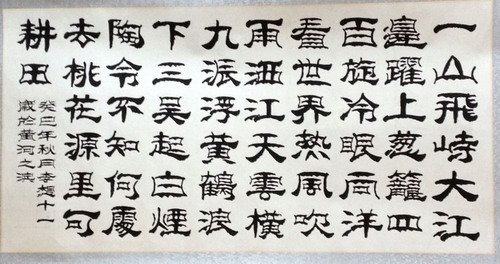 一山飛峙大江
邊躍上葱籠四
百旋冷眼向洋
看世界熱風吹
雨洒江天雲橫
九派浮黄鶴浪
下三吴起白煙
陶令不知何處
去桃花源里可
耕田
癸巳年秋月李十一
歲於黄河之滨